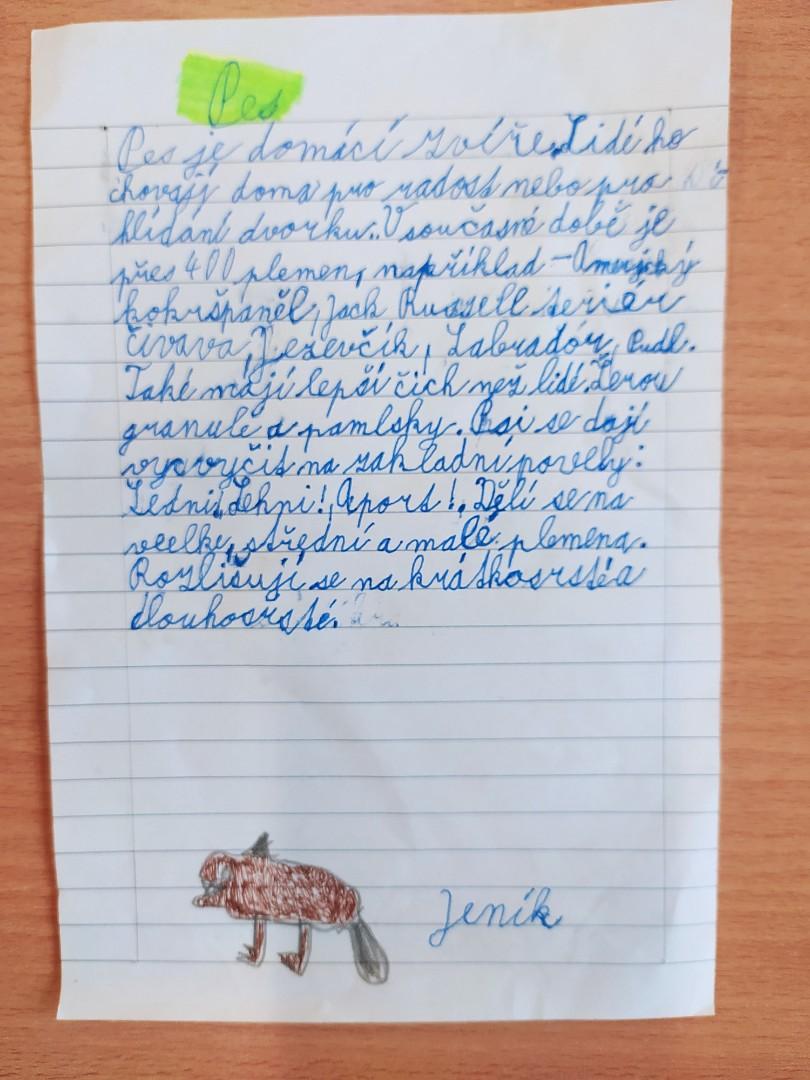 Pes
Pes je domácí zvíře. Lidé ho
chovají doma pro radost nebo pro
hlídání dvorku. V současné době je
přes 400 plemen, například - Americký
kokršpaněl, Jack Russell teriér
Čivava, Jezevčík, Labradór, Pudl.
Také mají lepší čich než lidé. Žerou
granule a pamlsky. Psi se dají
vycvyčit na zakladní povely:
Sedni! Lehni!, Aport!, Dělí se na
veelke, střední a malé plemena.
Rozlišují se na krátkosrsté a
dlouhosrsté.
Jeník